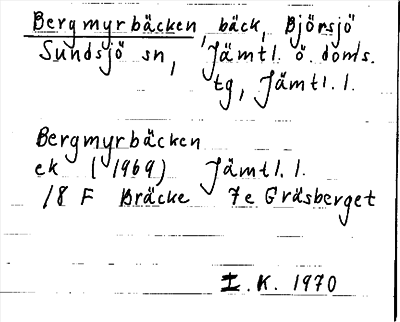 Bergmyrbäcken, bäck, Björsjö
Sundsjö sn, Jämtl. ö. doms.
tg, Jämtl. l.
Bergmyrbäcken
ek (1969) Jämtl. l.
18 F Bräcke 7e Gräsberget
I. K. 1970